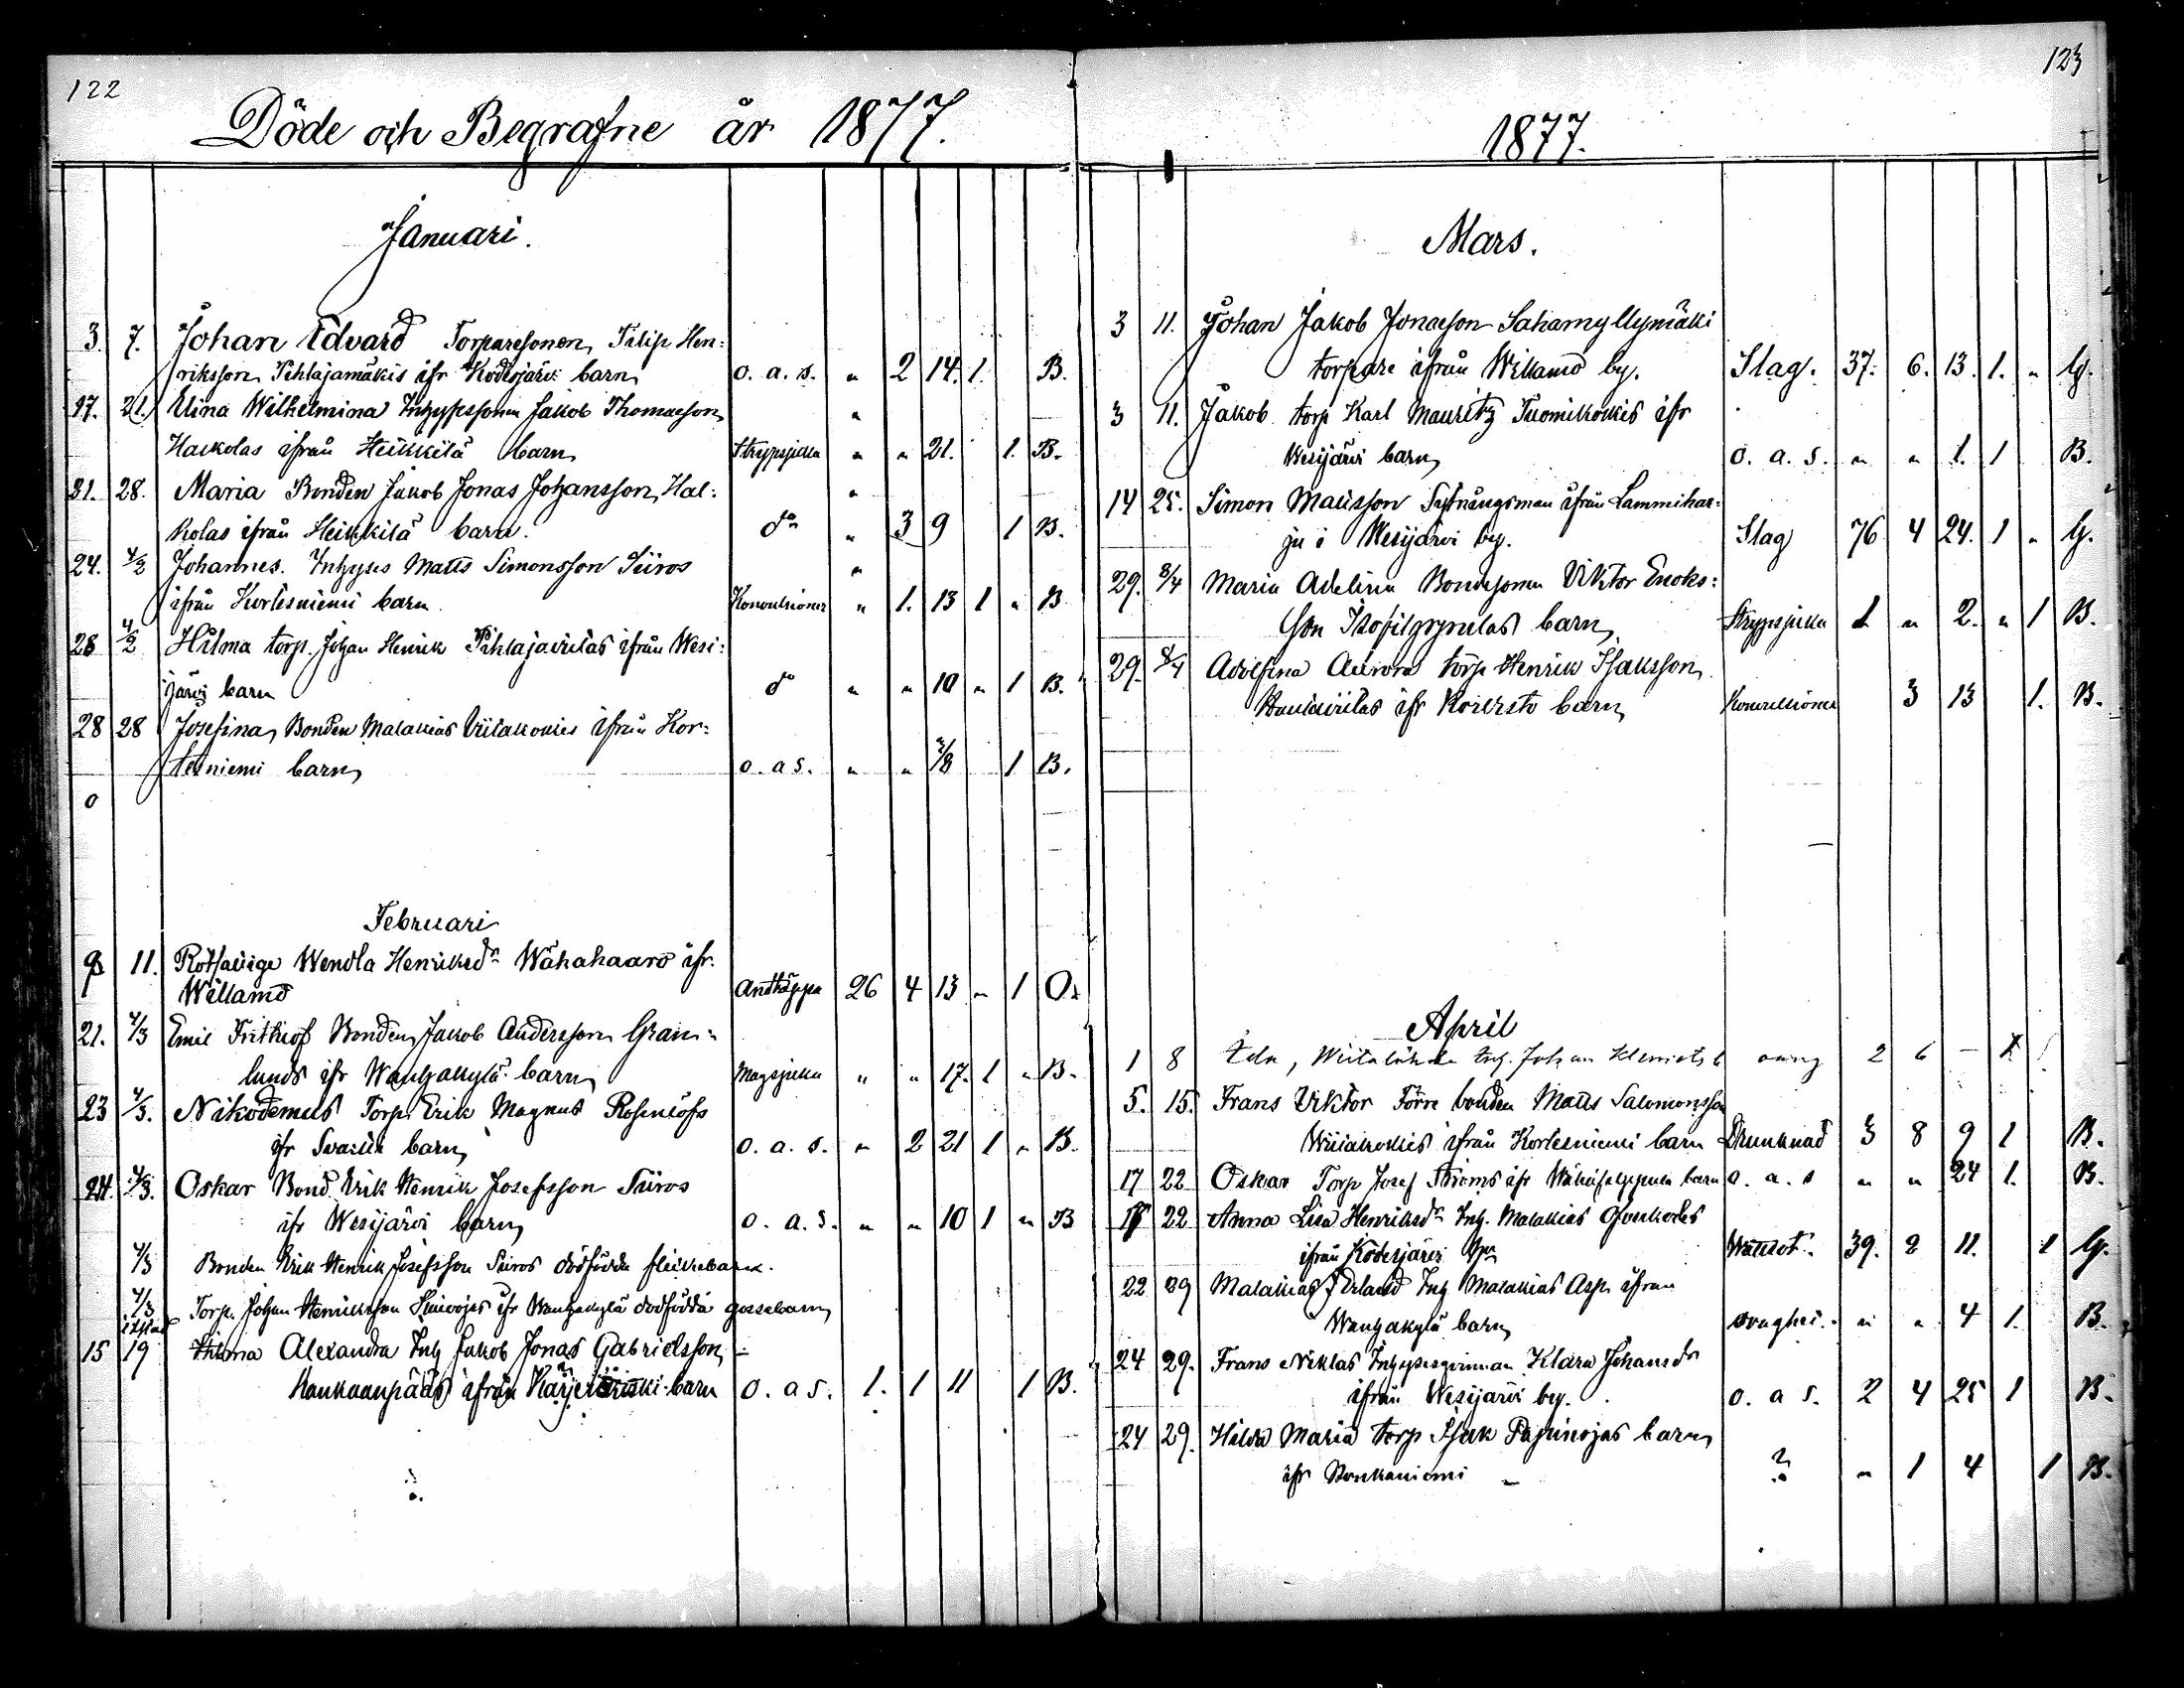 122
Döde och Begrafne år 1877.
Januari.
3. 7. Johan Edvard Torparesonen Filip Hen:
riksson Pihlajamäkis ifr Kodesjärvi barn o. a. s. " 2 14. 1. B.
17. 21. Elina Wilhelmina Inhysessonen Jakob Thomasson "
Hackolas ifrån Heikkilä barn Strypsjuka " " 21. 1. B.
21. 28. Maria Bonden Jakob Jonas Johansson Hal: "
kolas ifrån Heikkilä barn. do " 3 9 1 B.
24. 4/2 Johannes. Inhyses Matts Simonsson Siiros "
ifrån Kortesniemi barn Konvulsioner " 1. 13 1 " B
28 4/2 Hilma torp. Johan Henrik Pihlajaviitas ifrån Wesi:
järvi barn do " " 10 " 1 B.
28 28 Josefina, Bonden Malakias Viitakoskis ifrån Kor:
tesniemi barn o. a s. " " 3/8 1 B.
0
Februari
9 11. Rotfattige Wendla Henriksdr Wähahaaro ifr.
Willamo Andtäppa 26 4 13 " 1 O.
21. 4/3 Emil Frithiof Bonden Jakob Andersson Gran:
lunds ifr Wanhakylä barn Magsjuka " " 17. 1 " B.
23 4/3. Nikodemus Torp. Erik Magnus Rosenlöfs
ifr barn o. a. s. " 2 21 1 " B.
24. 4/3. Oskar Bond. Erik Henrik Josefsson Siiros
ifr Wesijärvi barn o. a. s. " " 10 1 " B
4/3 Bonden Erik Henrik Josefsson Siiros dödfödda flickebarn.
4/3 Torp. Johan Henriksson ifr Wanhakylä dödfödda gossebarn
15 19 Hilma Alexandra Inh Jakob Jonas Gabrielsson
Kankaanpääs ifrån barn o. a s. 1. 1 11 1 B.
123
1877.
Mars.
3 11. Johan Jakob Jonasson Sahamyllymäki
torpare ifrån Willamo by. Slag. 37. 6. 13. 1. " G.
3 11. Jakob torp Karl Mauritz Tuomikoskis ifr
Wesijärvi barn o. a. s. " " 1. 1 B.
14 25. Simon Mattsson Sytningsman ifrån Lammihar:
ju i Wesijärvi by. Slag 76 4 24. 1 " G.
29. 8/4 Maria Adelina Bondesonen Viktor Enoks:
son barn Strypsjuka 1 " 2. " 1 B.
29. 8/4 Adolfina Aurora torp Henrik Isaksson
ifr Koiersto barn Konvulsioner 3 13 1. B.
April
1 8 Inh. Johan 2 6 –
5. 15. Frans Viktor Förre bonden Matts Salomonsson
Wiitakoskis ifrån Kortesniemi barn Drunknad 3 8 9 1 B.
17 22 Oskar Torp Josef Ströms ifr barn o. a. s " " 24 1. B.
17 22 Anna Lisa Henriksdr Inh. Malakias
ifrån Kodesjärvi Wattsot. 39. 2 11. 1 G.
22 29 Malakias Erland Inh Malakias Asp. ifrån
Wanhakylä barn svaghet. " " 4 1. B.
24 29. Frans Niklas Inhysesqvinnan Klara Johansdr
ifrån Wesijärvi by. o. a s. 2 4 25 1 B.
24 29. Hilda Maria torp Isak Pajuniojas barn
ifr Konkaniemi – ? " 1 4 1 B.